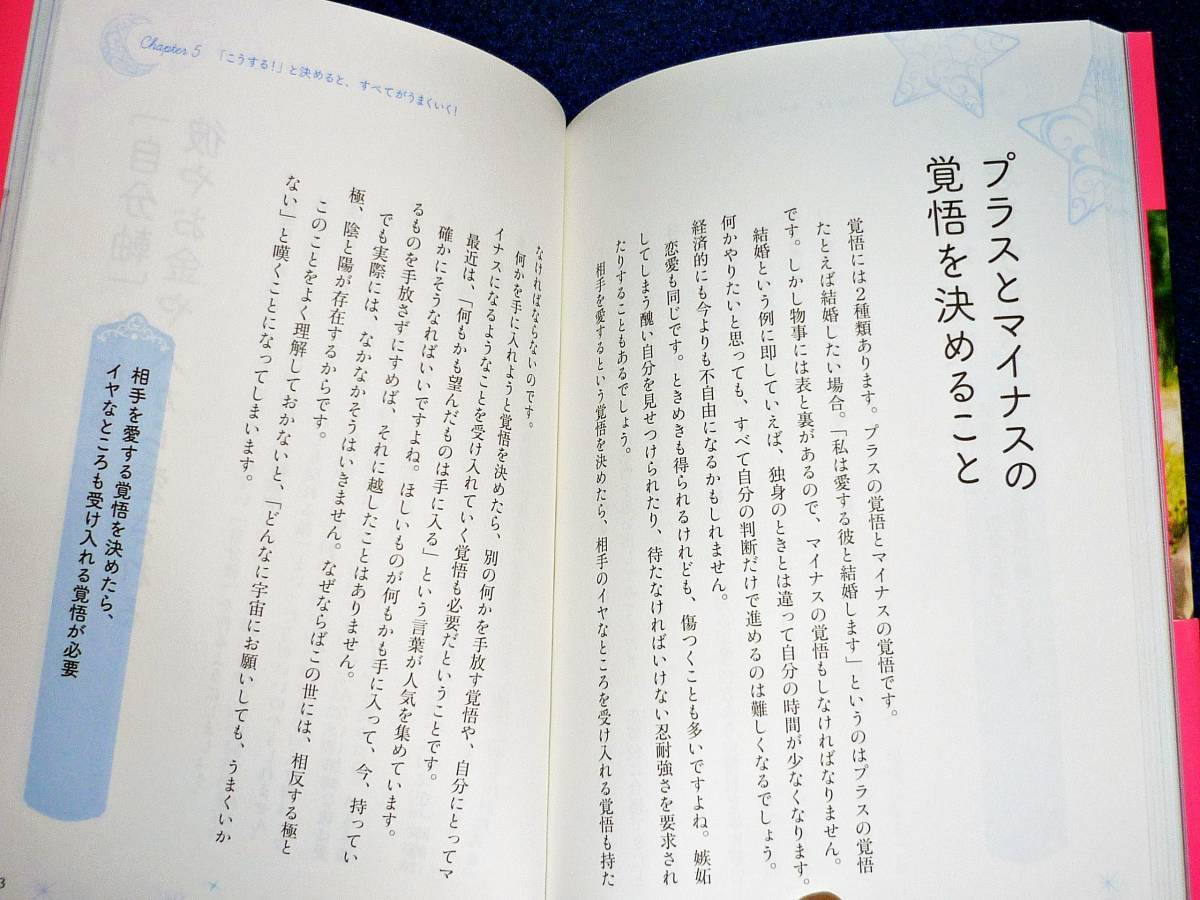 プラスとマイナスの
覚悟を決めること
覚悟には2種類あります。プラスの覚悟とマイナスの覚悟です。
たとえば結婚したい場合。「私は愛する彼と結婚します」というのはプラスの覚悟
です。しかし物事には表と裏があるので、マイナスの覚悟もしなければなりません。
結婚という例に即していえば、独身のときとは違って自分の時間が少なくなります。
何かやりたいと思っても、すべて自分の判断だけで進めるのは難しくなるでしょう。
経済的にも今よりも不自由になるかもしれません。
恋愛も同じです。ときめきも得られるけれども、傷つくことも多いですよね。嫉妬
してしまう醜い自分を見せつけられたり、待たなければいけない忍耐強さを要求され
たりすることもあるでしょう。
相手を愛するという覚悟を決めたら、相手のイヤなところを受け入れる覚悟も持た
Chapter 5 「こうする!」と決めると、すべてがうまくいく!
なければならないのです。
何かを手に入れようと覚悟を決めたら、別の何かを手放す覚悟や、自分にとってマ
イナスになるようなことを受け入れていく覚悟も必要だということです。
最近は、「何もかも望んだものは手に入る」という言葉が人気を集めています。
確かにそうなればいいですよね。ほしいものが何もかも手に入って、今、持ってい
るものを手放さずにすめば、それに越したことはありません。
でも実際には、なかなかそうはいきません。なぜならばこの世には、相反する極と
極、陰と陽が存在するからです。
このことをよく理解しておかないと、「どんなに宇宙にお願いしても、うまくいか
ない」と嘆くことになってしまいます。
相手を愛する覚悟を決めたら、
イヤなところも受け入れる覚悟が必要
3